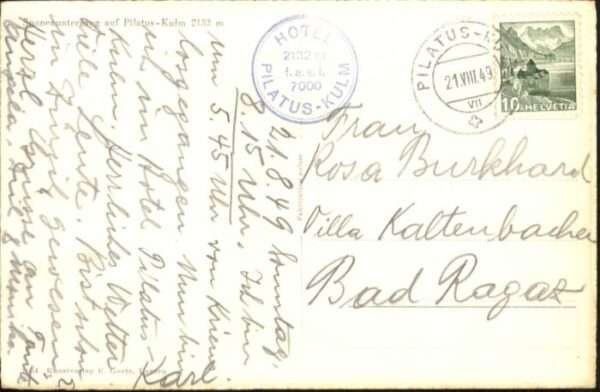 Sonnenuntergang auf Pilatus-Kulm 2132 m
HOTEL
2132 m
PILATUS-KULM
7000
PILATUS-K
21.VIII.49
VII
10 HELVETIA
21.8.49 Sonntag,
8.15 Uhr. Ich bin
um 5.45 Uhr von Kriens
losgegangen. Nun bin
ich im Hotel Pilatus-
Kulm. Herrliches Wetter.
Viele Leute. Bist schon
in gewesen?
Herzl. Grüsse an Tante
Karl.
Frau
Rosa Burkhard
Villa Kaltenbacher
Bad Ragaz
Kunstverlag E. Goetz, Luzern